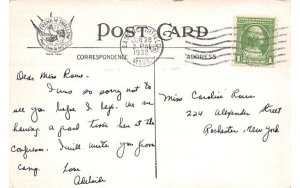 POST CARD
CORRESPONDENCE
ADDRESS
JUN 28
2 PM
1932
MASS.
Dear Miss Rowe -
I was so sorry not to
see you before I left. We are
having a great time here at the
conference. I will write you from
camp.
Love
Adelaide
Miss Caroline Rowe
224 Alexander Street
Rochester, New York